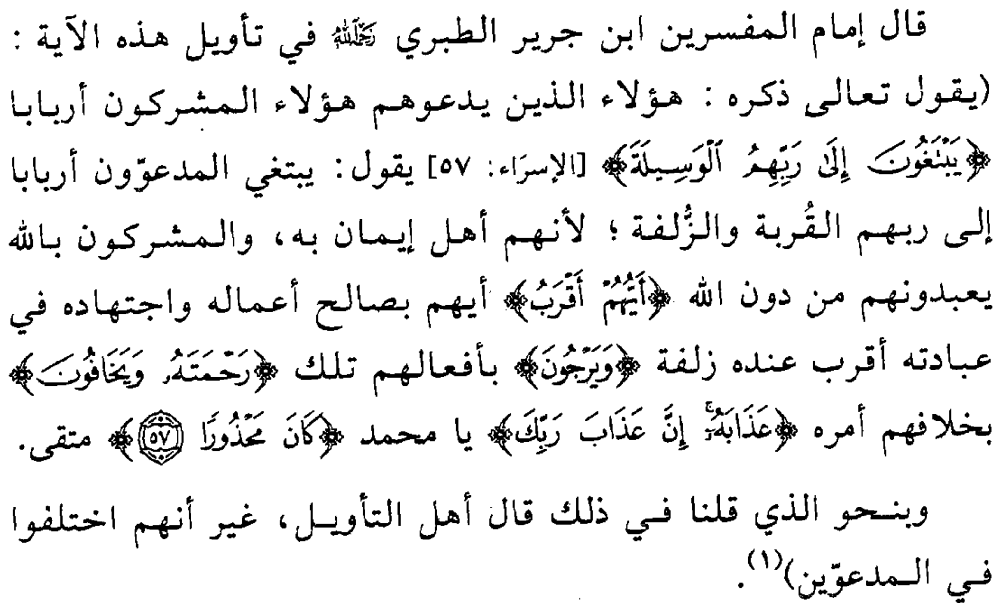 قال إمام المفسرين ابن جرير الطبري رَحِمَهُ اللَّهُ في تأويل هذه الآية :
(يقول تعالى ذكره : هؤلاء الذين يدعوهم هؤلاء المشركون أربابا
﴿يَبْتَغُونَ إِلَىٰ رَبِّهِمُ ٱلْوَسِيلَةَ﴾ [الإسرَاء: ٥٧] يقول: يبتغي المدعوّون أربابا
إلى ربهم القُربة والزُّلفة ؛ لأنهم أهل إيمان به، والمشركون بالله
يعبدونهم من دون الله ﴿أَيُّهُمْ أَقْرَبُ﴾ أيهم بصالح أعماله واجتهاده في
عبادته أقرب عنده زلفة ﴿وَيَرْجُونَ﴾ بأفعالهم تلك ﴿رَحْمَتَهُۥ وَيَخَافُونَ﴾
بخلافهم أمره ﴿عَذَابَهُۥٓۚ إِنَّ عَذَابَ رَبِّكَ﴾ يا محمد ﴿كَانَ مَحْذُورًا ٥٧﴾ متقى.
وبنحو الذي قلنا في ذلك قال أهل التأويل، غير أنهم اختلفوا
في المدعوّين)(١).